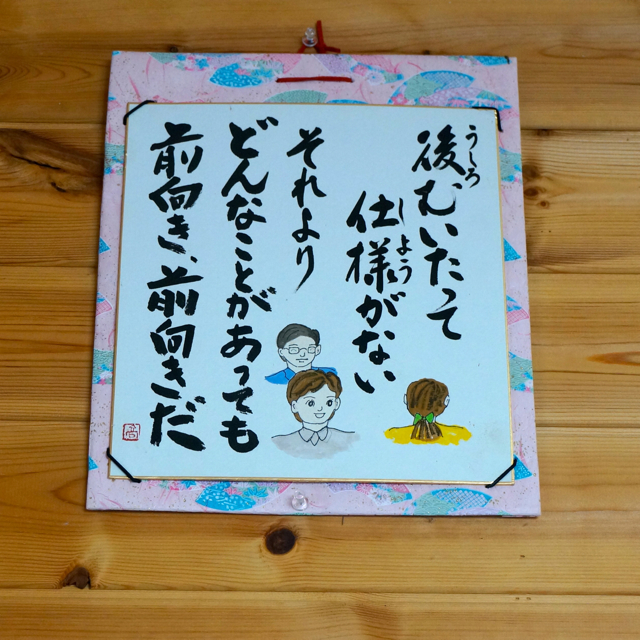 後むいたって
仕様がない
それより
どんなことがあっても
前向き、前向きだ
うしろ
しよう